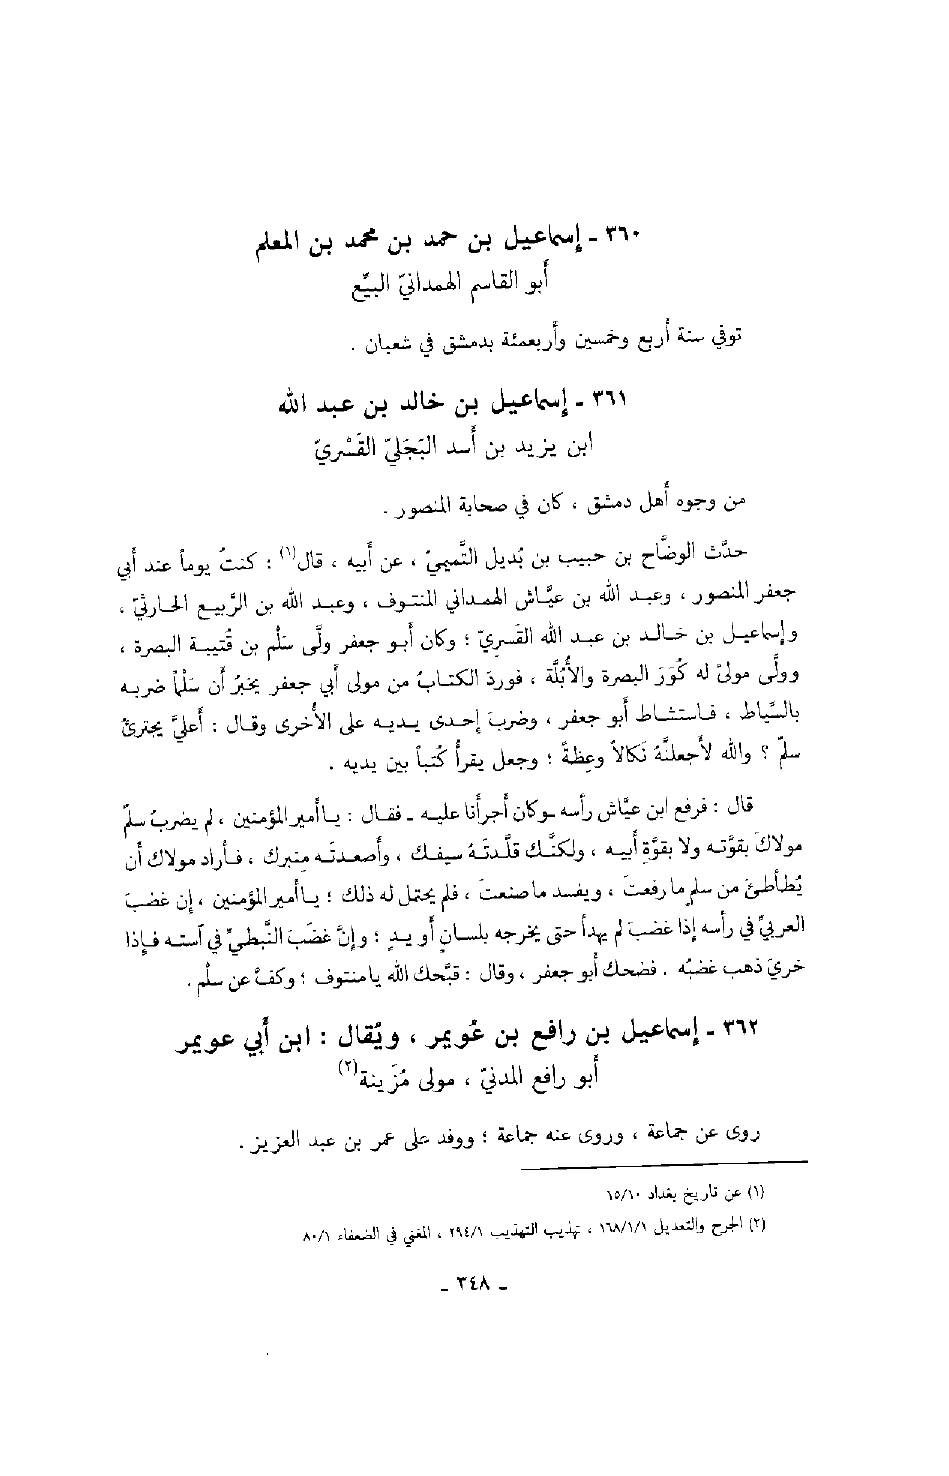 ٣٦٠ - إسماعيل بن حمد بن محمد بن المعلم
أبو القاسم الهمدانيّ البيّع
توفي سنة أربع وخمسين وأربعمئة بدمشق في شعبان .
٣٦١ - إسماعيل بن خالد بن عبد الله
ابن يزيد بن أسد البَجَليّ القَسْريّ
من وجوه أهل دمشق ، كان في صحابة المنصور .
حدّث الوضَّاح بن حبيب بن بُديل التَّميميّ ، عن أبيه ، قال(١) : كنتُ يوماً عند أبي
جعفر المنصور ، وعبد الله بن عيَّاش الهمداني المنتوف ، وعبد الله بن الرَّبيع الحارثيّ ،
وإسماعيل بن خالد بن عبد الله القسريّ ؛ وكان أبو جعفر ولَّى سَلْم بن قُتيبة البصرة ،
وولَّى مولىً له كُوَرَ البصرة والأُبُلَّة ، فوردَ الكتابُ من مولى أبي جعفر يخبرُ أن سَلْماً ضربه
بالسِّياط ، فاستشاط أبو جعفر ، وضربَ إحدى يديه على الأخرى وقال : أعليَّ يجترئُ
سلمٌ ؟ والله لأجعلنَّهُ نَكالاً وعِظةً ؛ وجعل يقرأُ كُتباً بين يديه .
قال : فرفع ابن عيَّاش رأسه ـ وكان أجرأنا عليه ـ فقال : يا أمير المؤمنين ، لم يضربْ سلمٌ
مولاكَ بقوَّته ولا بقوَّةِ أبيه ، ولكنَّك قلَّدتَهُ سيفك ، وأصعدتَه منبرك ، فأراد مولاك أن
يُطأطئَ من سلمٍ ما رفعتَ ، ويفسد ما صنعتَ ، فلم يحتمل له ذلك ؛ يا أمير المؤمنين ، إن غضبَ
العربيِّ في رأسه إذا غضبَ لم يهدأ حتى يخرجه بلسانٍ أو يدٍ ؛ وإنَّ غضَبَ النَّبطيِّ في آسته فإذا
خريَ ذهب غضبُه . فضحك أبو جعفر ، وقال : قبَّحك الله يا منتوف ؛ وكفَّ عن سلْم .
٣٦٢ - إسماعيل بن رافع بن عُويمر ، ويُقال : ابن أبي عويمر
أبو رافع المدنيّ ، مولى مُزَينة(٢)
روى عن جماعة ، وروى عنه جماعة ؛ ووفد على عمر بن عبد العزيز .
(١) عن تاريخ بغداد ١٥/١٠
(٢) الجرح والتعديل ١٦٨/١/١ ، تهذيب التهذيب ٢٩٤/١ ، المغني في الضعفاء ٨٠/١
- ٣٤٨ -